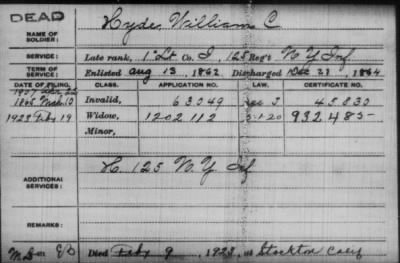 DEAD
NAME OF SOLDIER: Hyde, William C.
SERVICE: Late rank, 1" Lt Co. I, 125 Reg't N Y Inf
TERM OF SERVICE: Enlisted Aug 13, 1862, Discharged Dec 21, 1864
DATE OF FILING. CLASS. APPLICATION NO. LAW. CERTIFICATE NO.
1865 Mar 10 Invalid, 63049 45830
1923 Feb 19 Widow, 1202112 5-1-20 932485-
Minor,
ADDITIONAL SERVICES: H. 125 N. Y. Inf
REMARKS:
Died Feby 9, 1923, at Stockton Calif